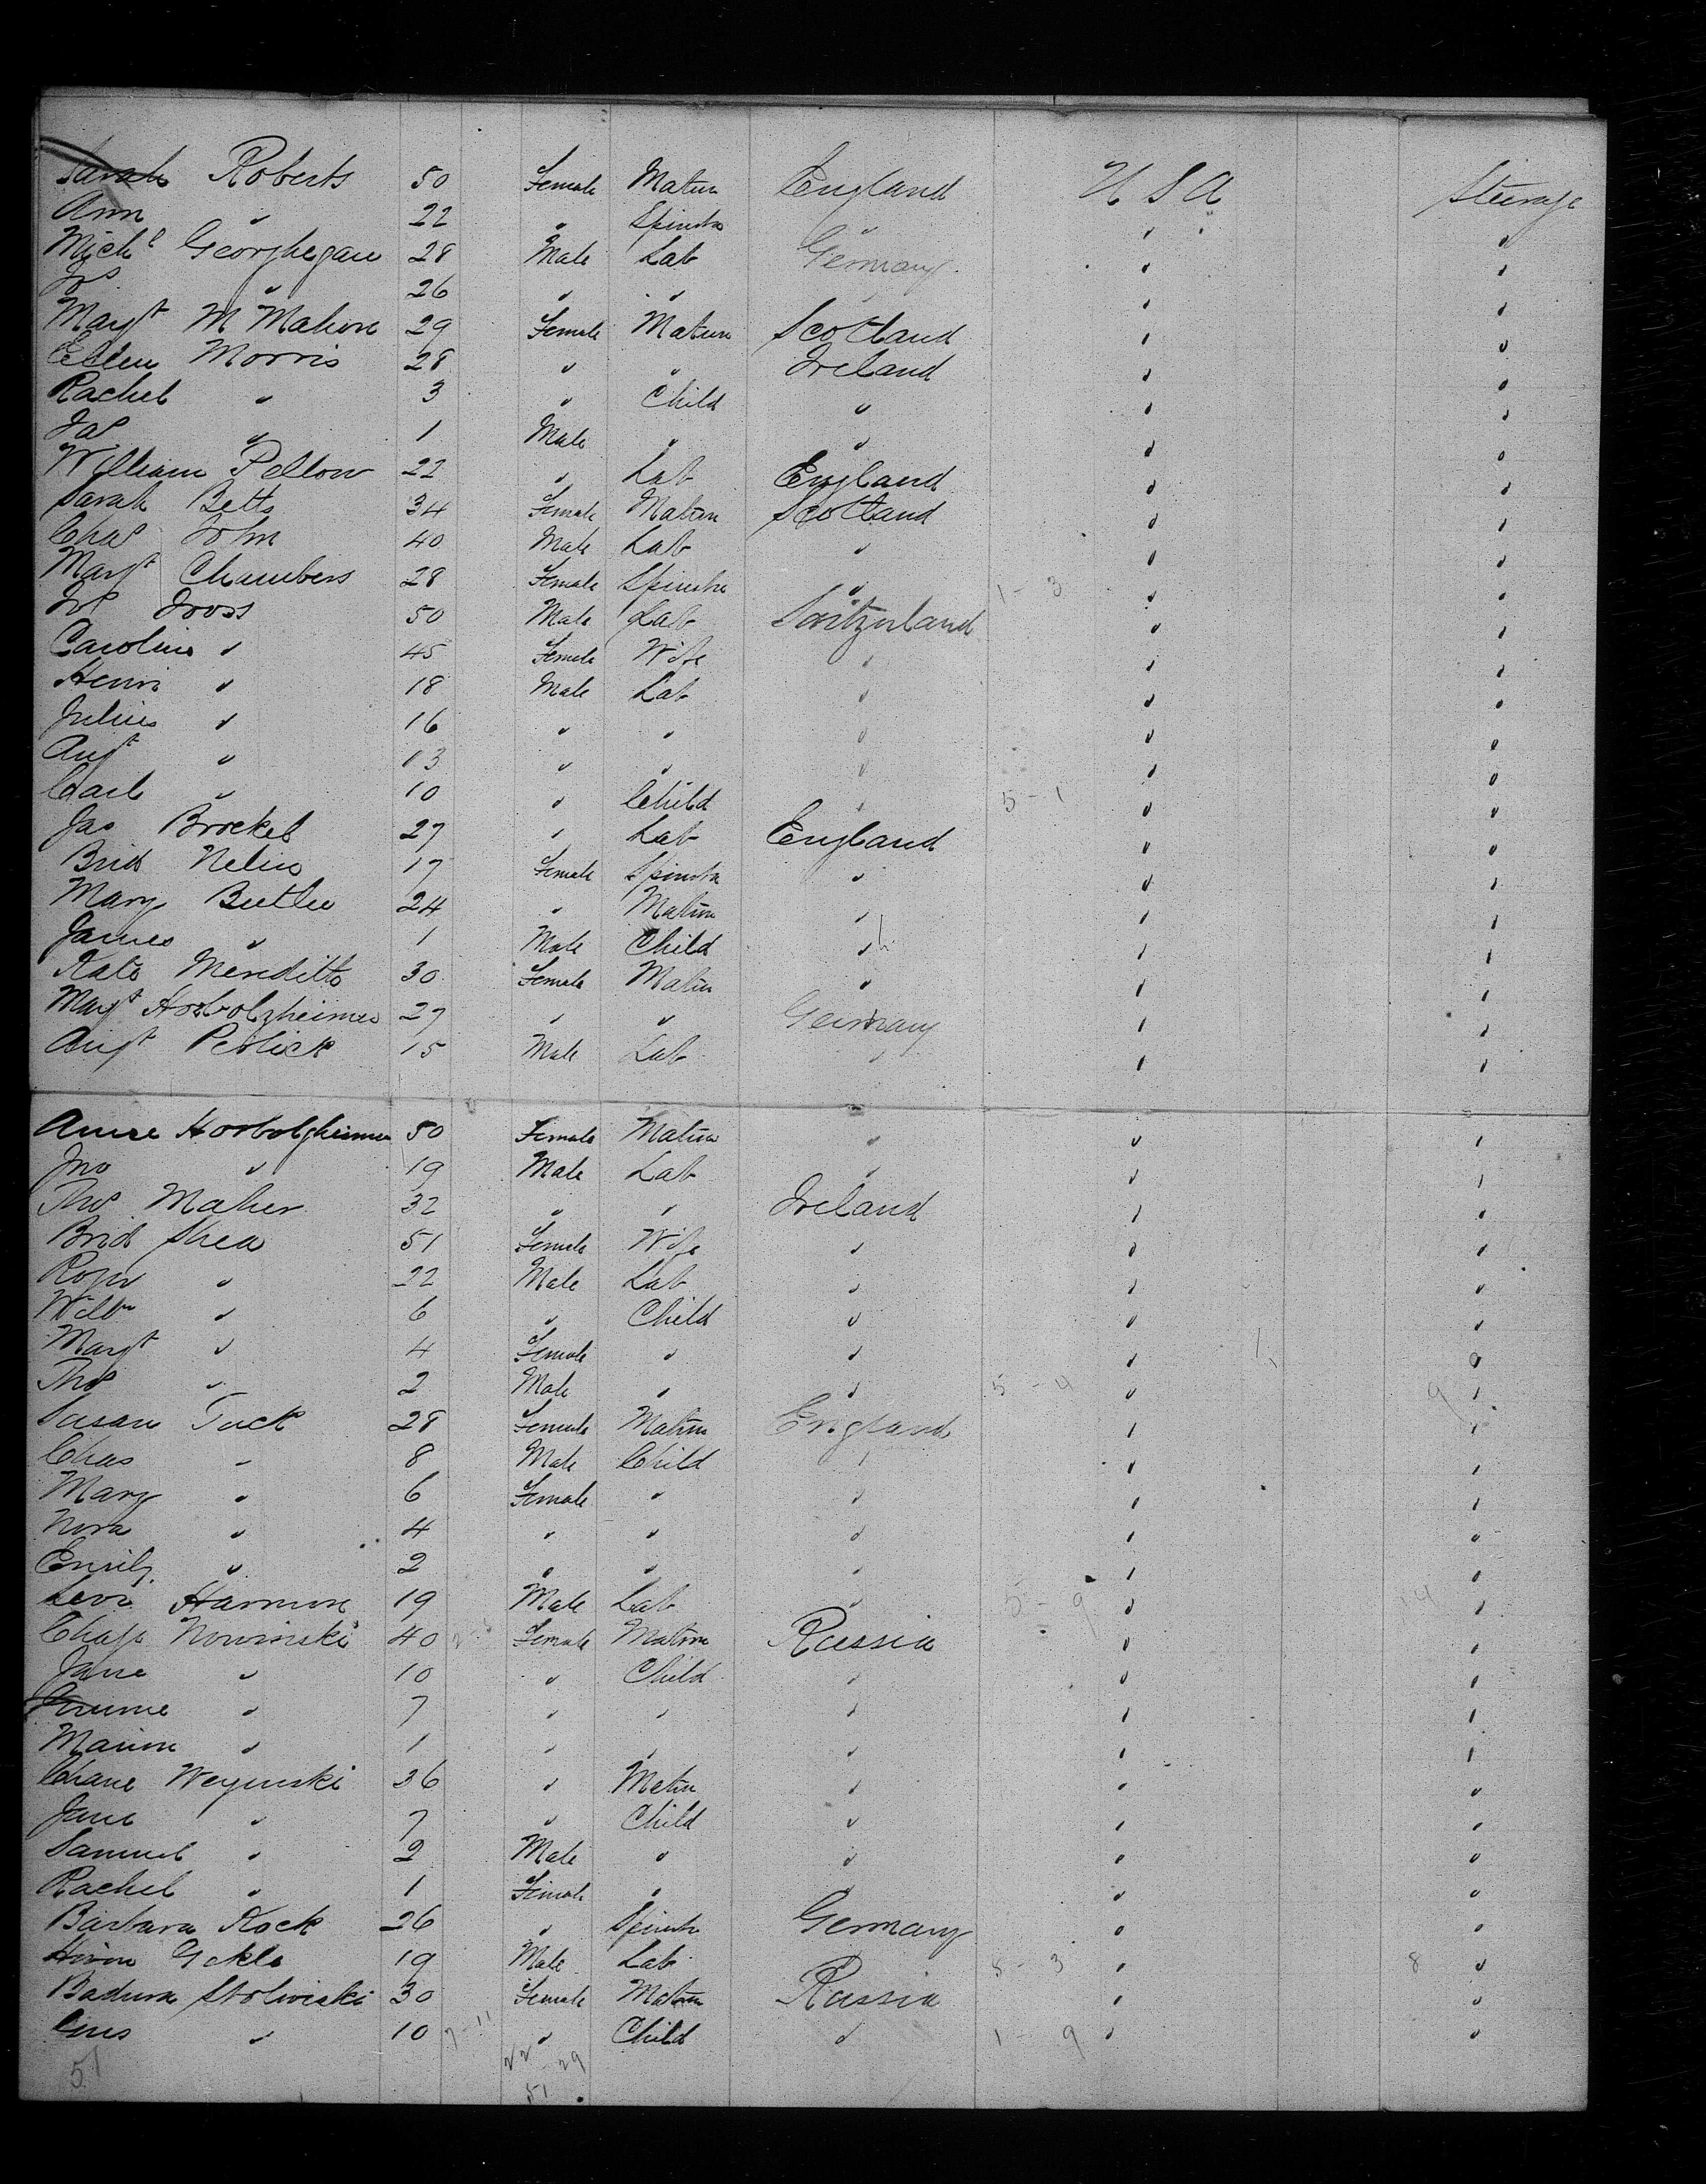 Sarah Roberts 50 Female Matron England U S A Steerage
Ann " 22 " Spinster " " "
Mich^l Georghegan 28 Male Lab Germany " "
Jos " 26 " " " "
Marg^t McMahon 29 Female Matron Scotland " "
Ellen Morris 28 " " Ireland " "
Rachel " 3 " Child " " "
Jas " 1 Male " " " "
William Pellow 22 " Lab England " "
Sarah Betts 34 Female Matron Scotland " "
Chas John 40 Male Lab " " "
Marg^t Chambers 28 Female Spinster " 1 - 3 " "
Jos Dross 50 Male Lab Switzerland " "
Caroline " 45 Female Wife " " "
Henri " 18 Male Lab " " "
Julius " 16 " " " " "
Aug^t " 13 " " " " "
Carl " 10 " Child " 5 - 1 " "
Jas Brockel 27 " Lab England " "
Brid 17 Female Spinster " " "
Mary Butler 24 " Matron " " "
James " 1 Male Child " " "
Kate Meredith 30 Female Matron " " "
Marg^t Horbolzheimer 27 " " Germany " "
Aug^t Perlick 15 Male Lab " " "
Anne Horbolzheimer 50 Female Matron " " "
Jno " 19 Male Lab " " "
Thos Maher 32 " " Ireland " "
Brid Shea 51 Female Wife " " "
Roger " 22 Male Lab " " "
Willm " 6 " Child " " "
Marg^t " 4 Female " " " "
Thos " 2 Male " " 5 - 4 " 9 "
Susan Tuck 28 Female Matron England " "
Chas " 8 Male Child " " "
Mary " 6 Female " " " "
Nora " 4 " " " " "
Emily " 2 " " " " "
Levi Harmon 19 Male Lab " 5 - 9 " 14 "
Chaje Nowinski 40 Female Matron Russia " "
Jane " 10 " Child " " "
" 7 " " " " "
" 1 " " " " "
Chane Weyinski 36 " Matron " " "
Jane " 7 " Child " " "
Samuel " 2 Male " " " "
Rachel " 1 Female " " " "
Barbara Kock 26 " Spinster Germany " "
19 Male Lab 5 - 3 " 8 "
30 Female Matron Russia " "
" 10 7-11 " Child " 1 - 9 " "
51 22 29
51